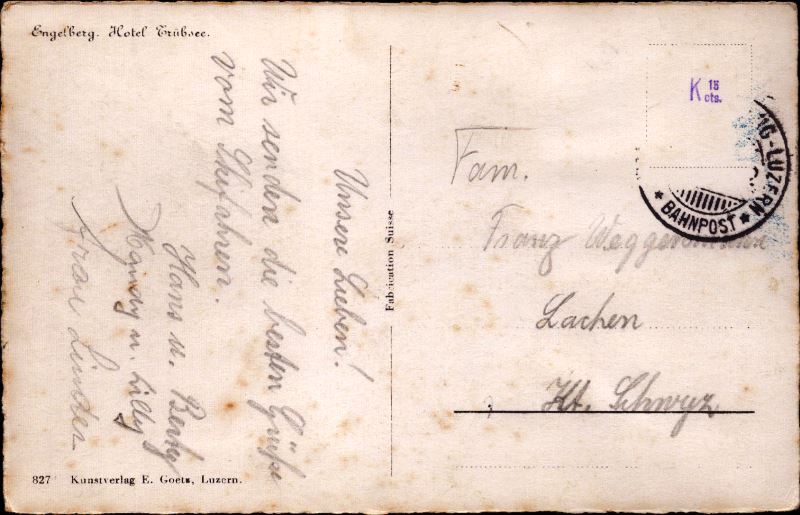 Engelberg. Hotel Trübsee.
Unsere Lieben!
Wir senden die besten Grüße
vom Skifahren.
Hans u. Berty
u. Lilly
Frau
Fabrication Suisse
K 15
cts.
NG-LUZERN
* BAHNPOST *
Fam.
Franz
Lachen
Kt. Schwyz
827 Kunstverlag E. Goetz, Luzern.